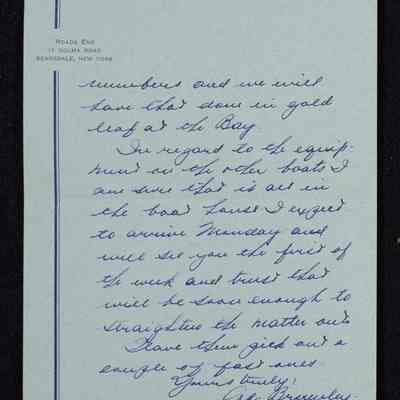 ROADS END
17 OGLMA ROAD
SCARSDALE, NEW YORK
numbers and we will
have that done in gold
leaf at the Bay.
In regard to the equip-
ment on the other boats I
am sure that is all in
the boat house I expect
to arrive Monday and
will see you the first of
the week and trust that
will be soon enough to
straighten the matter out.
Have them pick out a
couple of fast ones.
Yours truly,